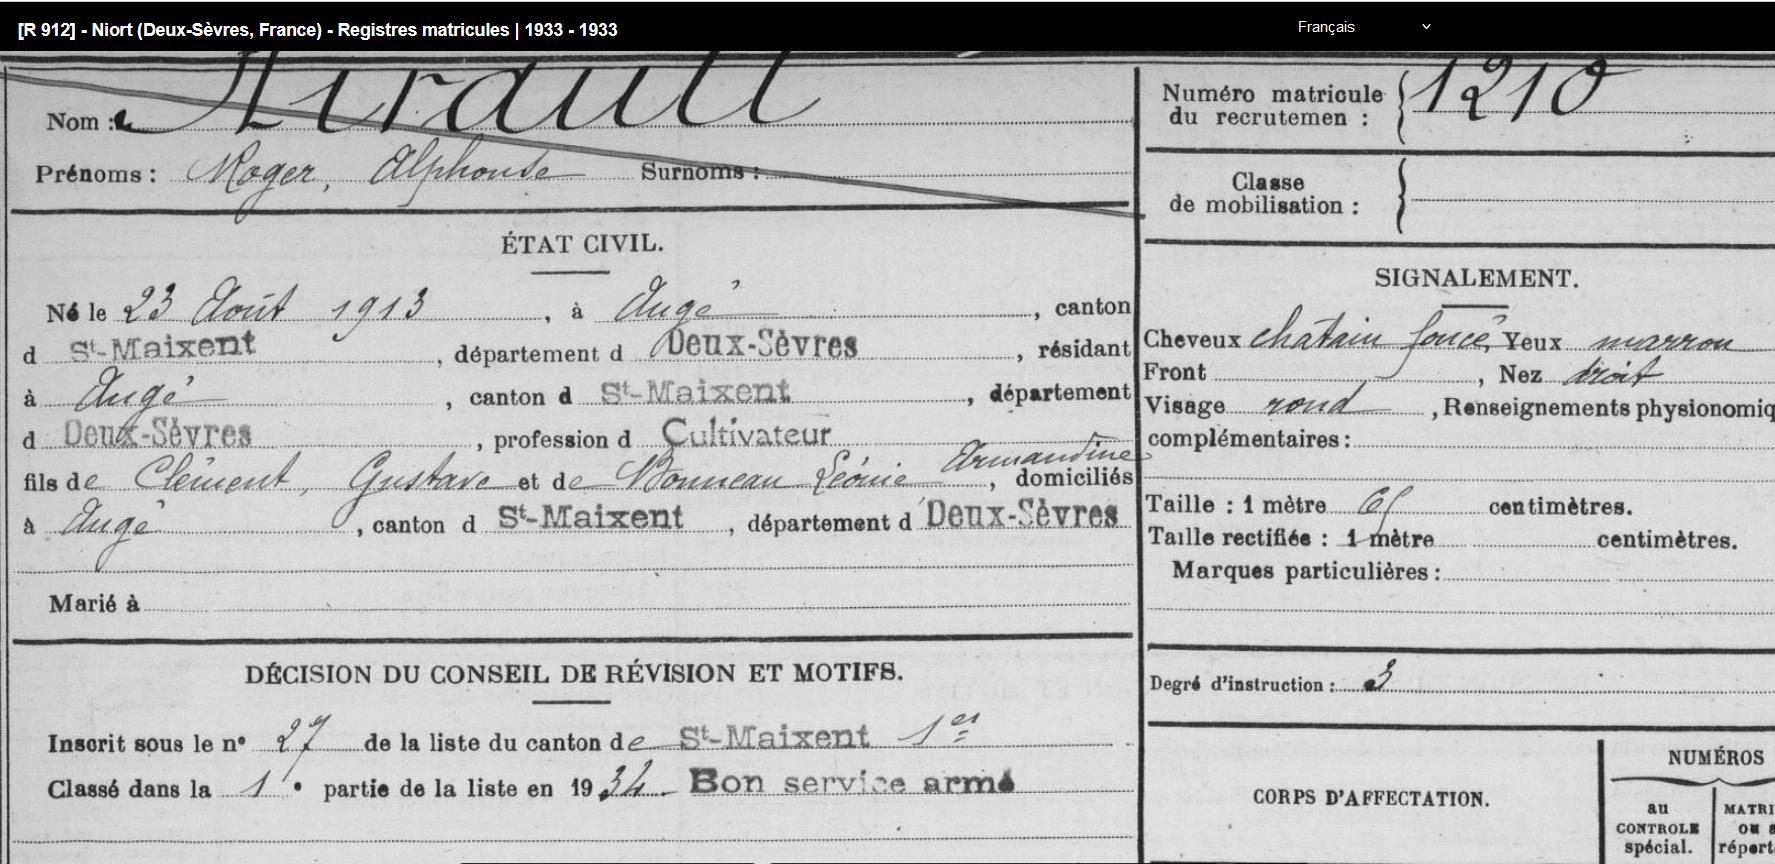 [R 912] - Niort (Deux-Sèvres, France) - Registres matricules | 1933 - 1933
Français
Nom : Hirault
Prénoms : Roger, Alphonse Surnoms :
ÉTAT CIVIL.
Né le 23 Août 1913, à Augé, canton
d St-Maixent, département d Deux-Sèvres, résidant
à Augé, canton d St-Maixent, département
d Deux-Sèvres, profession d Cultivateur
fils de Clément, Gustave et de Bonneau Léonie Armandine, domiciliés
à Augé, canton d St-Maixent, département d Deux-Sèvres
Marié à
DÉCISION DU CONSEIL DE RÉVISION ET MOTIFS.
Inscrit sous le n° 27 de la liste du canton de St-Maixent 1er
Classé dans la 1e partie de la liste en 1934 Bon service armé
Numéro matricule
du recrutemen : 1210
Classe
de mobilisation :
SIGNALEMENT.
Cheveux châtain foncé, Yeux marron
Front , Nez droit
Visage rond , Renseignements physionomiq
complémentaires :
Taille : 1 mètre 65 centimètres.
Taille rectifiée : 1 mètre centimètres.
Marques particulières :
Degré d'instruction : 3
CORPS D'AFFECTATION.
NUMÉROS
au
CONTROLE
spécial.
MATRI
OU
répert